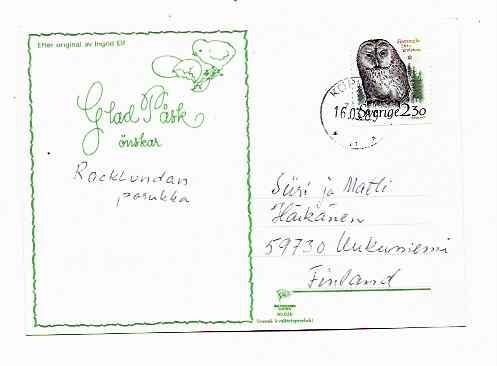 Efter original av Ingrid Elf
Glad Påsk
önskar
Racklundan
porukka
Sverige 2.30
16.03.89
Siiri ja Matti
Häikänen
59730 Uukuniemi
Finland
Svensk kvalitetsprodukt